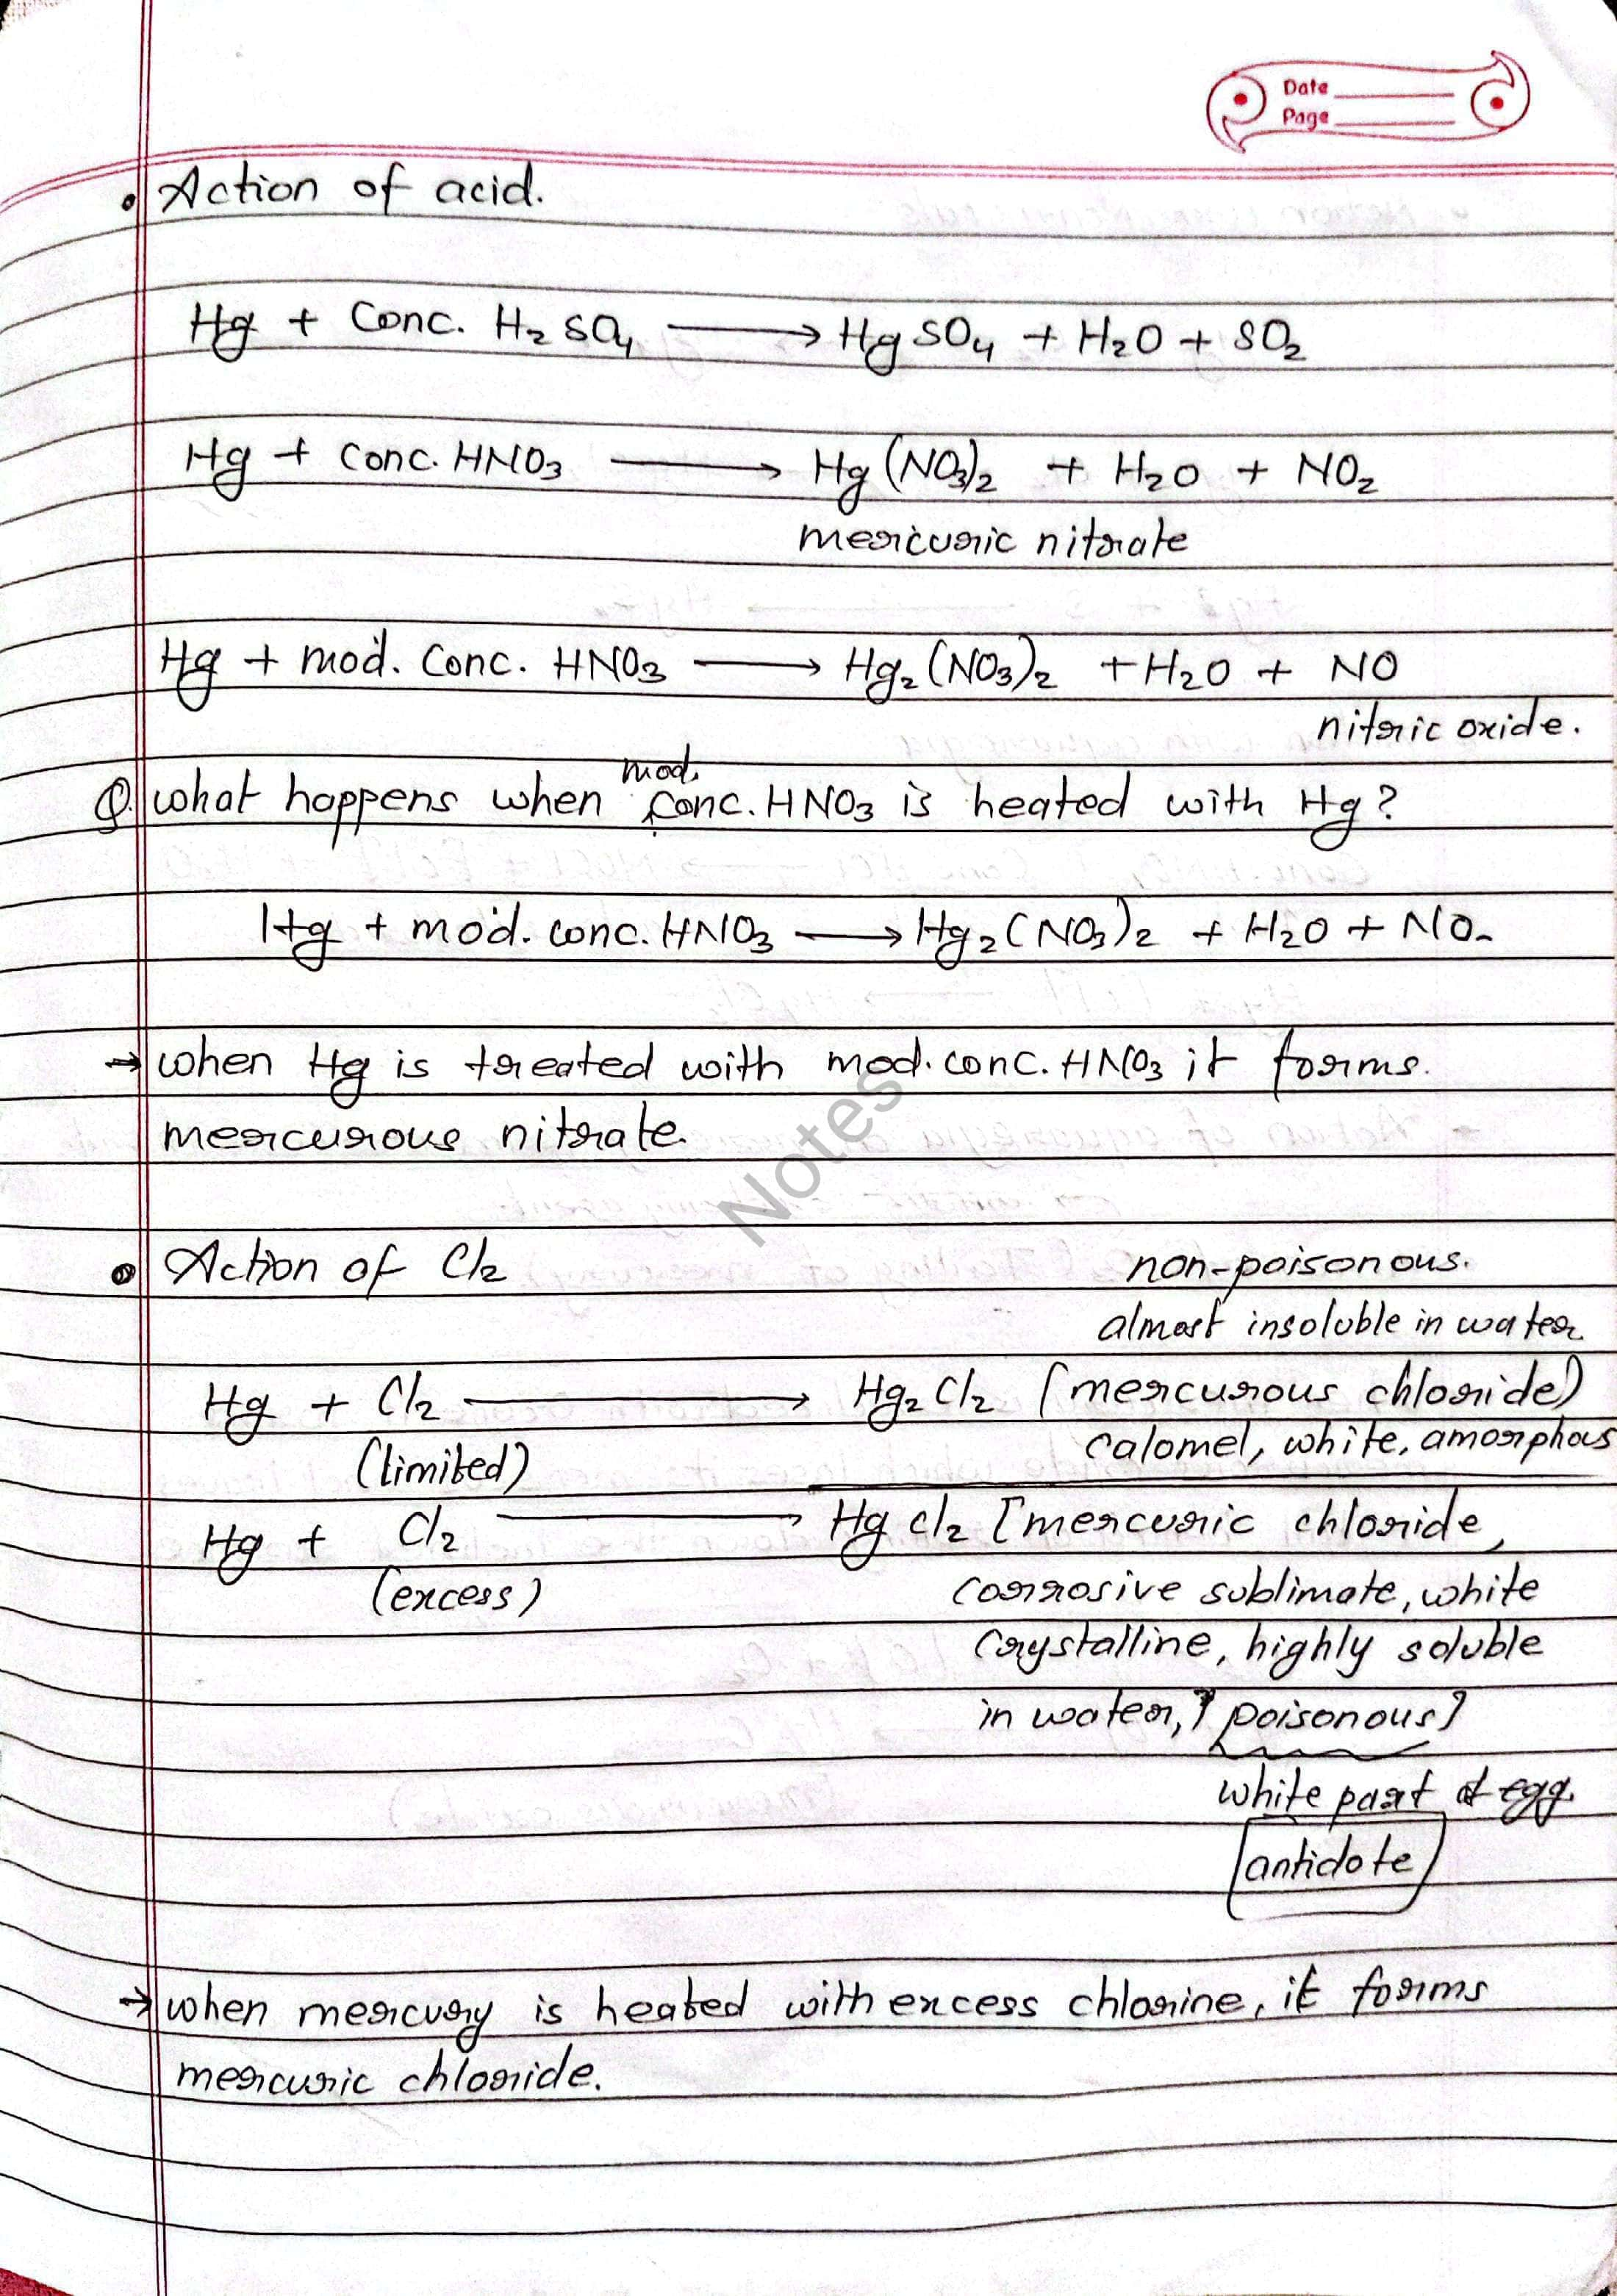 Date
Page
• Action of acid.
Hg + Conc. H₂SO₄ ⟶ HgSO₄ + H₂O + SO₂
Hg + conc. HNO₃ ⟶ Hg(NO₃)₂ + H₂O + NO₂
mercuric nitrate
Hg + mod. Conc. HNO₃ ⟶ Hg₂(NO₃)₂ + H₂O + NO
nitric oxide.
mod.
Q. what happens when conc. HNO₃ is heated with Hg?
Hg + mod. conc. HNO₃ ⟶ Hg₂(NO₃)₂ + H₂O + NO
→ when Hg is treated with mod. conc. HNO₃ it forms.
mercurous nitrate.
Notes
• Action of Cl₂ non-poisonous.
almost insoluble in water
Hg + Cl₂ ⟶ Hg₂Cl₂ [mercurous chloride)
(limited) calomel, white, amorphous
Hg + Cl₂ ⟶ HgCl₂ [mercuric chloride,
(excess) corrosive sublimate, white
crystalline, highly soluble
in water, poisonous]
white part of egg.
[antidote]
→ when mercury is heated with excess chlorine, it forms
mercuric chloride.